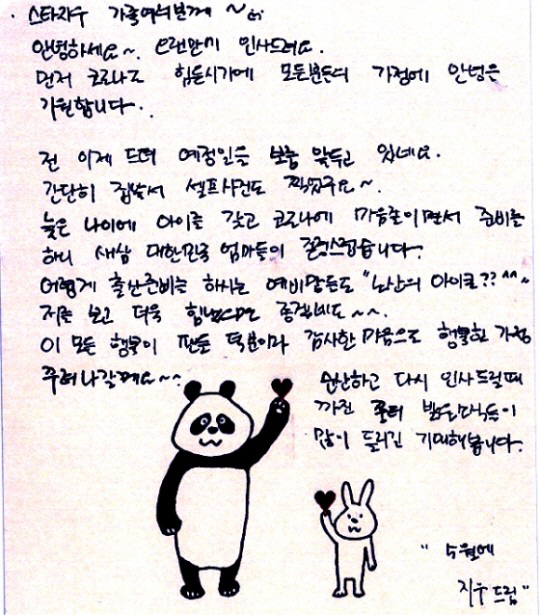 스타지우 가족여러분께 ~
안녕하세요~. 오랜만이 인사드려요.
먼저 코로나로 힘든시기에 모든분들의 가정에 안녕을
기원합니다.
전 이제 드뎌 예정일을 보름 앞두고 있네요.
간단히 집에서 셀프사진도 찍었구요~.
늦은 나이에 아이를 갖고 코로나에 마음졸이면서 준비를
하니 새삼 대한민국 엄마들이 존경스럽습니다.
어렵게 출산준비를 하시는 예비맘들도 "노산의 아이콘?? ^^~
저를 보고 더욱 힘내시면 좋겠네요~~.
이 모든 행복이 팬들 덕분이라 감사한 마음으로 행복한 가정
꾸려나갈께요~~
순산하고 다시 인사드릴때
까진 밝은소식들이
많이 들리길 기대해봅니다.
" 5월에
지우 드림 "